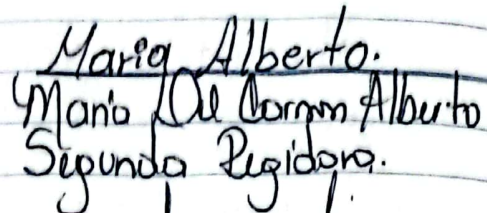 Maria Alberto.
Maria Del Carmen Alberto
Segunda Regidora.